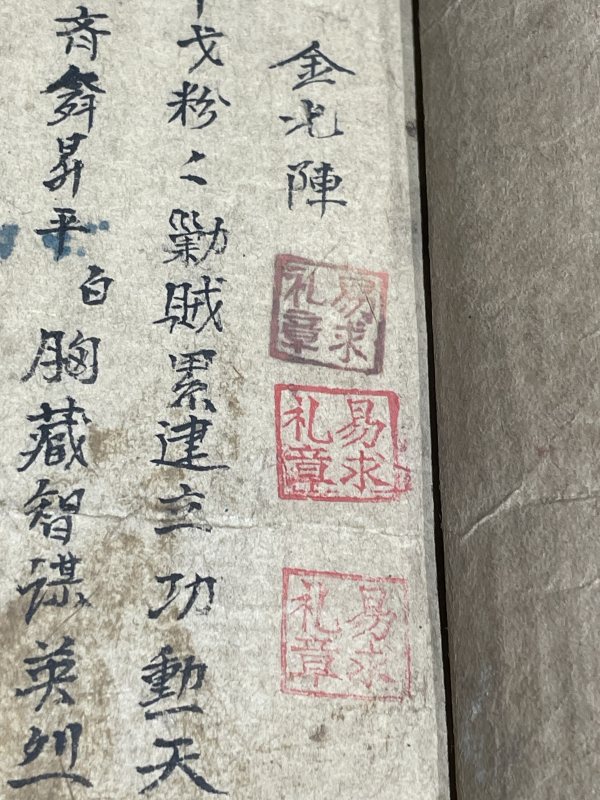 金光陣
易求
礼章
易求
礼章
易求
礼章
戈粉〻勦賊累建立功勳天
齊
昇平白胸藏智謀英烈